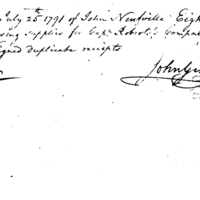 July 25th 1791 of John Neufville Eigh
ing supplies for Capt. Roberts's Compa
igned duplicate receipts
John